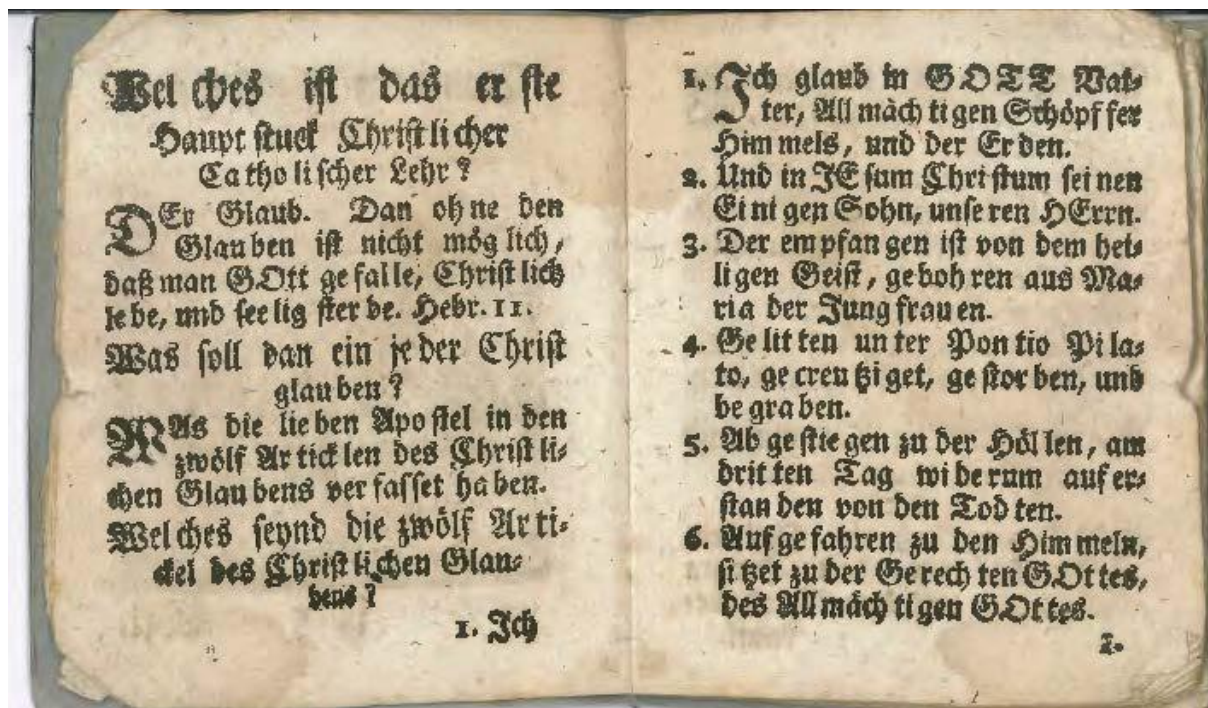 Wel ches ist das er ste
Haupt stuck Christ li cher
Ca tho li scher Lehr?
DEr Glaub. Dan oh ne den
Glau ben ist nicht mög lich,
daß man GOtt ge falle, Christ lich
le be, und see lig ster be. Hebr. 11.
Was soll dan ein je der Christ
glau ben?
WAs die lie ben Apo stel in den
zwölf Ar tick len des Christ li-
chen Glau bens ver fas set ha ben.
Wel ches seynd die zwölf Ar ti-
ckel des Christ li chen Glau-
bens?
1. Ich
1. Ich glaub in GOTT Vat-
ter, All mäch ti gen Schöpf fer
Him mels, und der Er den.
2. Und in JE sum Chri stum sei nen
Ei ni gen Sohn, unse ren HErrn.
3. Der em pfan gen ist von dem hei-
li gen Geist, ge boh ren aus Ma-
ria der Jung frau en.
4. Ge lit ten un ter Pon tio Pi la-
to, ge creu tzi get, ge stor ben, und
be gra ben.
5. Ab ge stie gen zu der Höl len, am
drit ten Tag wi de rum auf er-
stan den von den Tod ten.
6. Auf ge fahren zu den Him meln,
si tzet zu der Ge rech ten GOt tes,
des All mäch ti gen GOt tes.